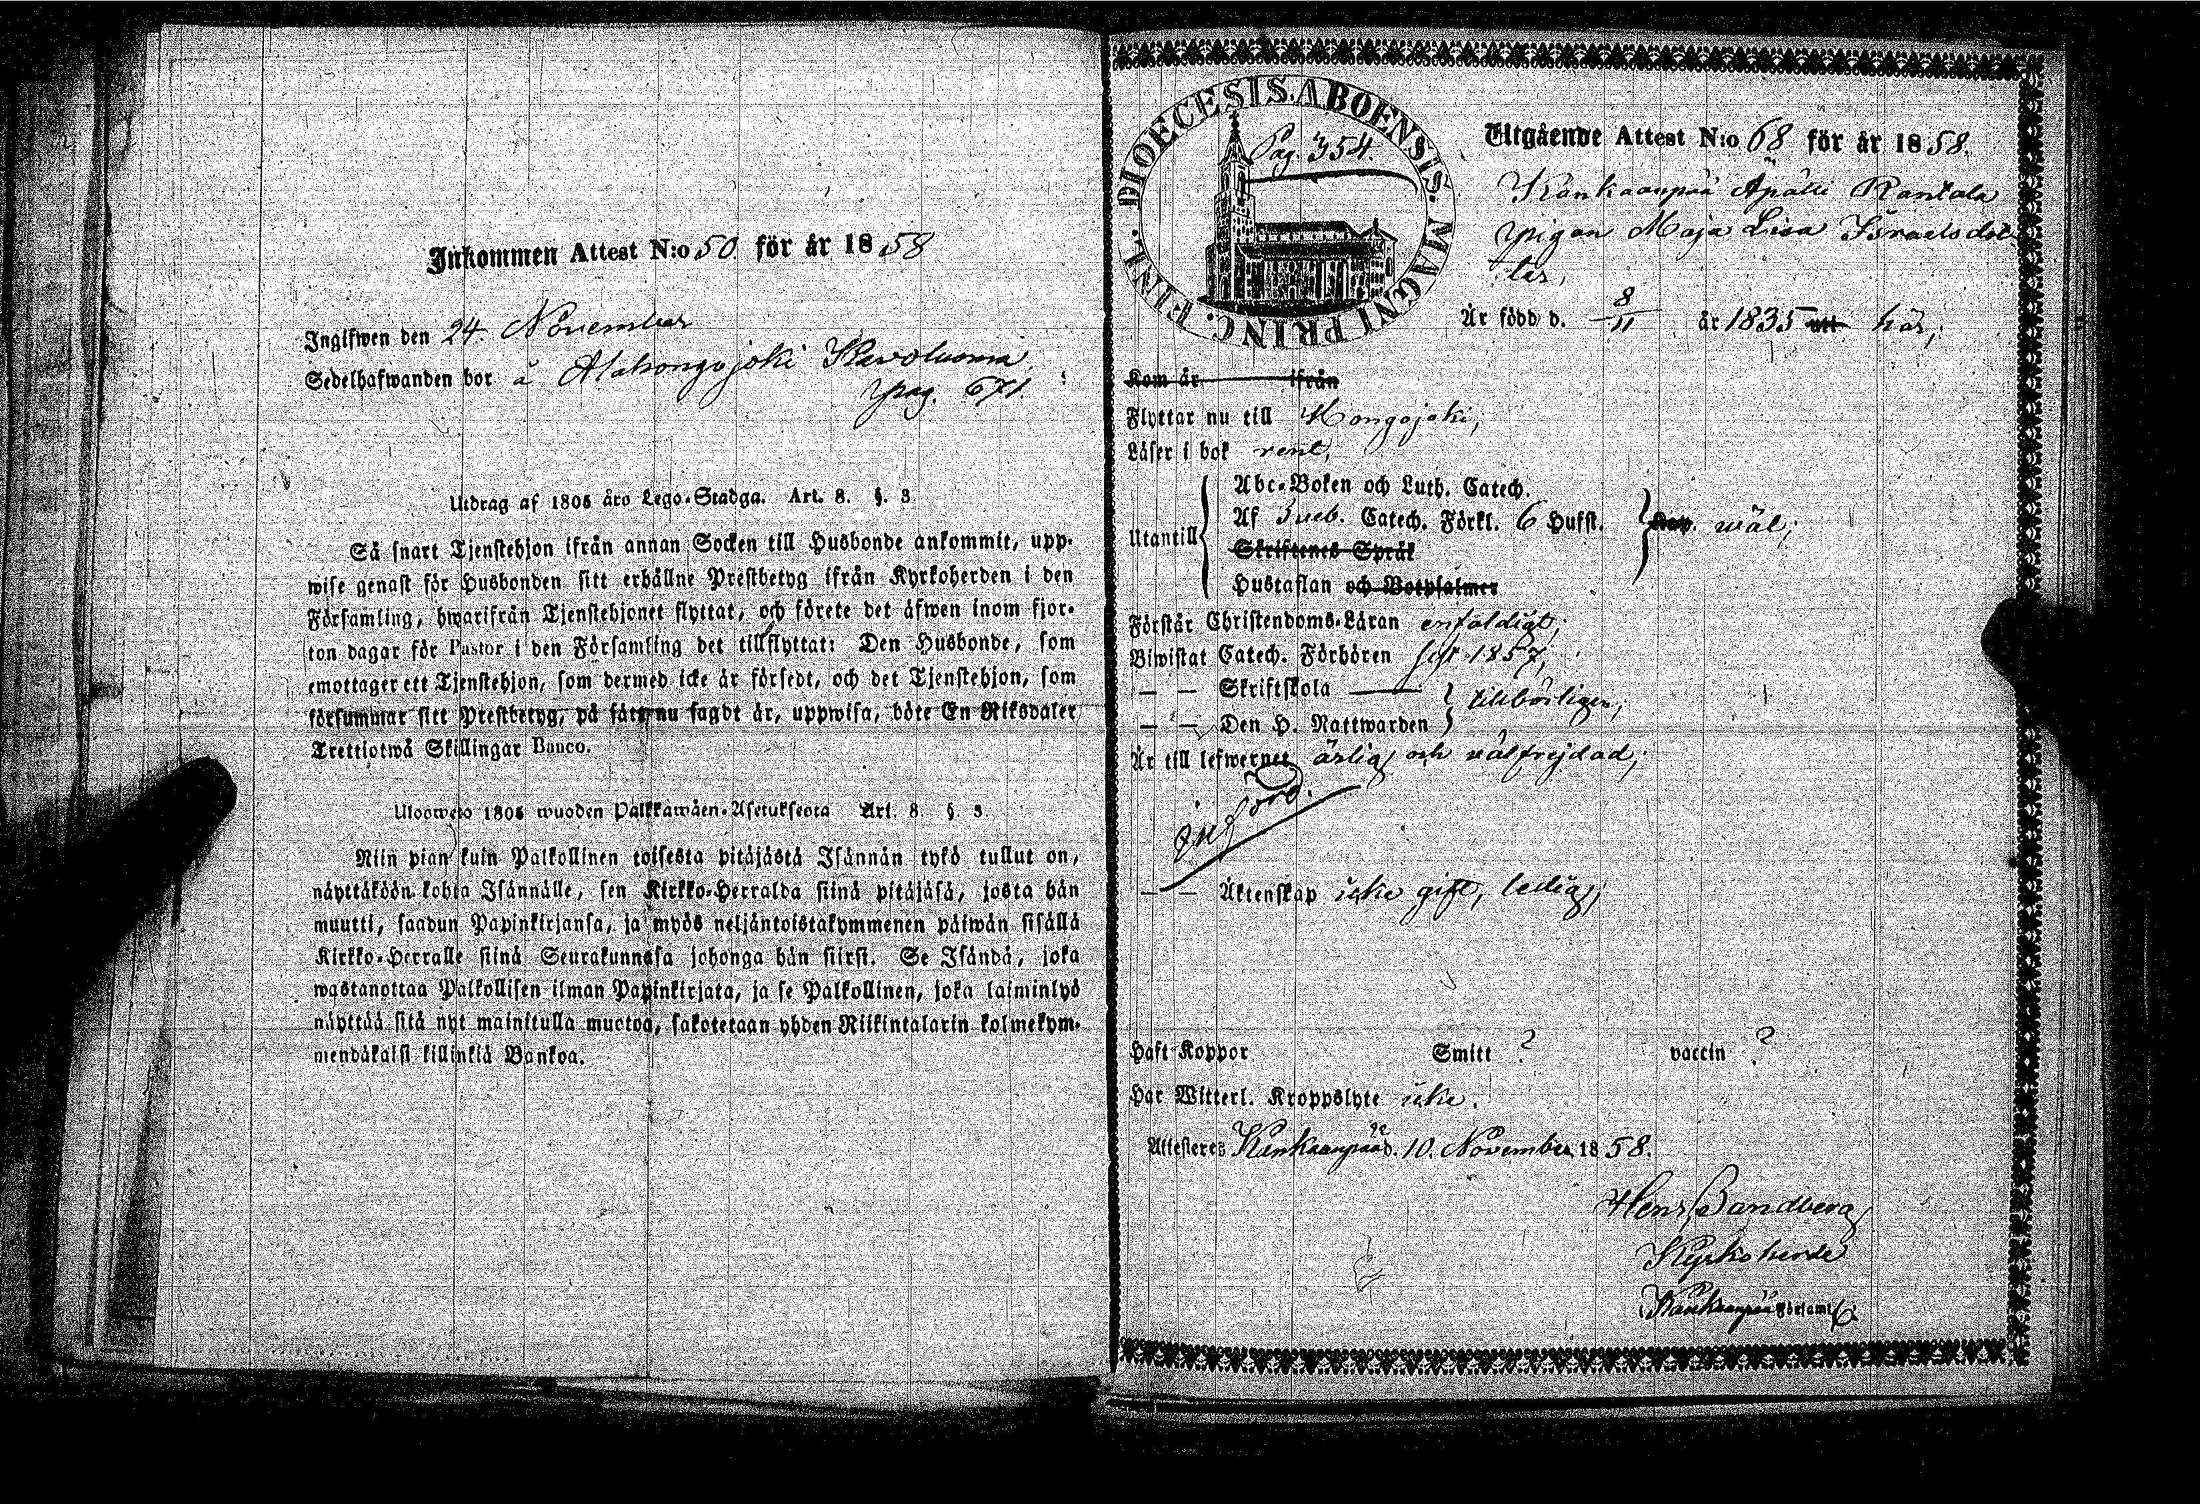 Inkommen Attest N:o 50 för år 1858
Ingifwen den 24. November
Sedelhafwanden bor å
pag. 671.
Utdrag af 1805 års Lego-Stadga. Art. 8. §. 3.
Så snart Tjenstehjon ifrån annan Socken till Husbonde ankommit, upp-
wise genast för Husbonden sitt erhållne Prestbetyg ifrån Kyrkoherden i den
Församling, hwarifrån Tjenstehjonet flyttat, och förete det äfwen inom fjor-
ton dagar för Pastor i den Församling det tillflyttat: Den Husbonde, som
emottager ett Tjenstehjon, som dermed icke är försedt, och det Tjenstehjon, som
försummar sitt Prestbetyg, på sätt nu sagdt är, uppwisa, böte En Riksdaler
Trettiotwå Skillingar Banco.
Ulosweto 1805 wuoden Palkkawäen-Asetuksesta Art. 8. §. 3.
Niin pian kuin Palkollinen toisesta pitäjästä Isännän tykö tullut on,
näyttäköön kohta Isännälle, sen Kirkko-Herralda siinä pitäjäsä, josta hän
muutti, saadun Papinkirjansa, ja myös neljäntoistakymmenen päiwän sisällä
Kirkko-Herralle siinä Seurakunnasa johonga hän siirsi. Se Isändä, joka
wastanottaa Palkollisen ilman Papinkirjata, ja se Palkollinen, joka laiminlyö
näyttää sitä nyt mainitulla muotoa, sakotetaan yhden Riikintalarin kolmekym-
mendäkaksi killinkiä Bankoa.
DIOECESIS. ABOENSIS. MAGNI PRINC. FINL.
Pag. 354.
Utgående Attest N:o 68 för år 1858.
Kankaanpää Äpätti Rantala
pigan Maja Lisa Israelsdot-
ter,
Är född d. 8/11 år 1835 uti här,
Kom år ifrån
Flyttar nu till Hongojoki,
Läser i bok rent,
Utantill
Abc-Boken och Luth. Catech.
Af Sveb. Catech. Förkl. 6 Hufst. wäl;
Skriftenes Språk
Hustaflan och Botpsalmer
Förstår Christendoms-Läran enfaldigt;
Biwistat Catech. Förhören sist 1857,
— — Skriftskola
tillbörligen,
— — Den H. Nattwarden
Är till lefwernet ärlig och wälfrejdad,
Införd.
— — Äktenskap icke gift, ledig;
Haft Koppor Smitt ? vaccin ?
Har Witterl. Kroppslyte icke.
Attesteres Kankaanpää d. 10. November 1858.
Henr. Sandberg
Kyrkoherde
Kankaanpää Församl.